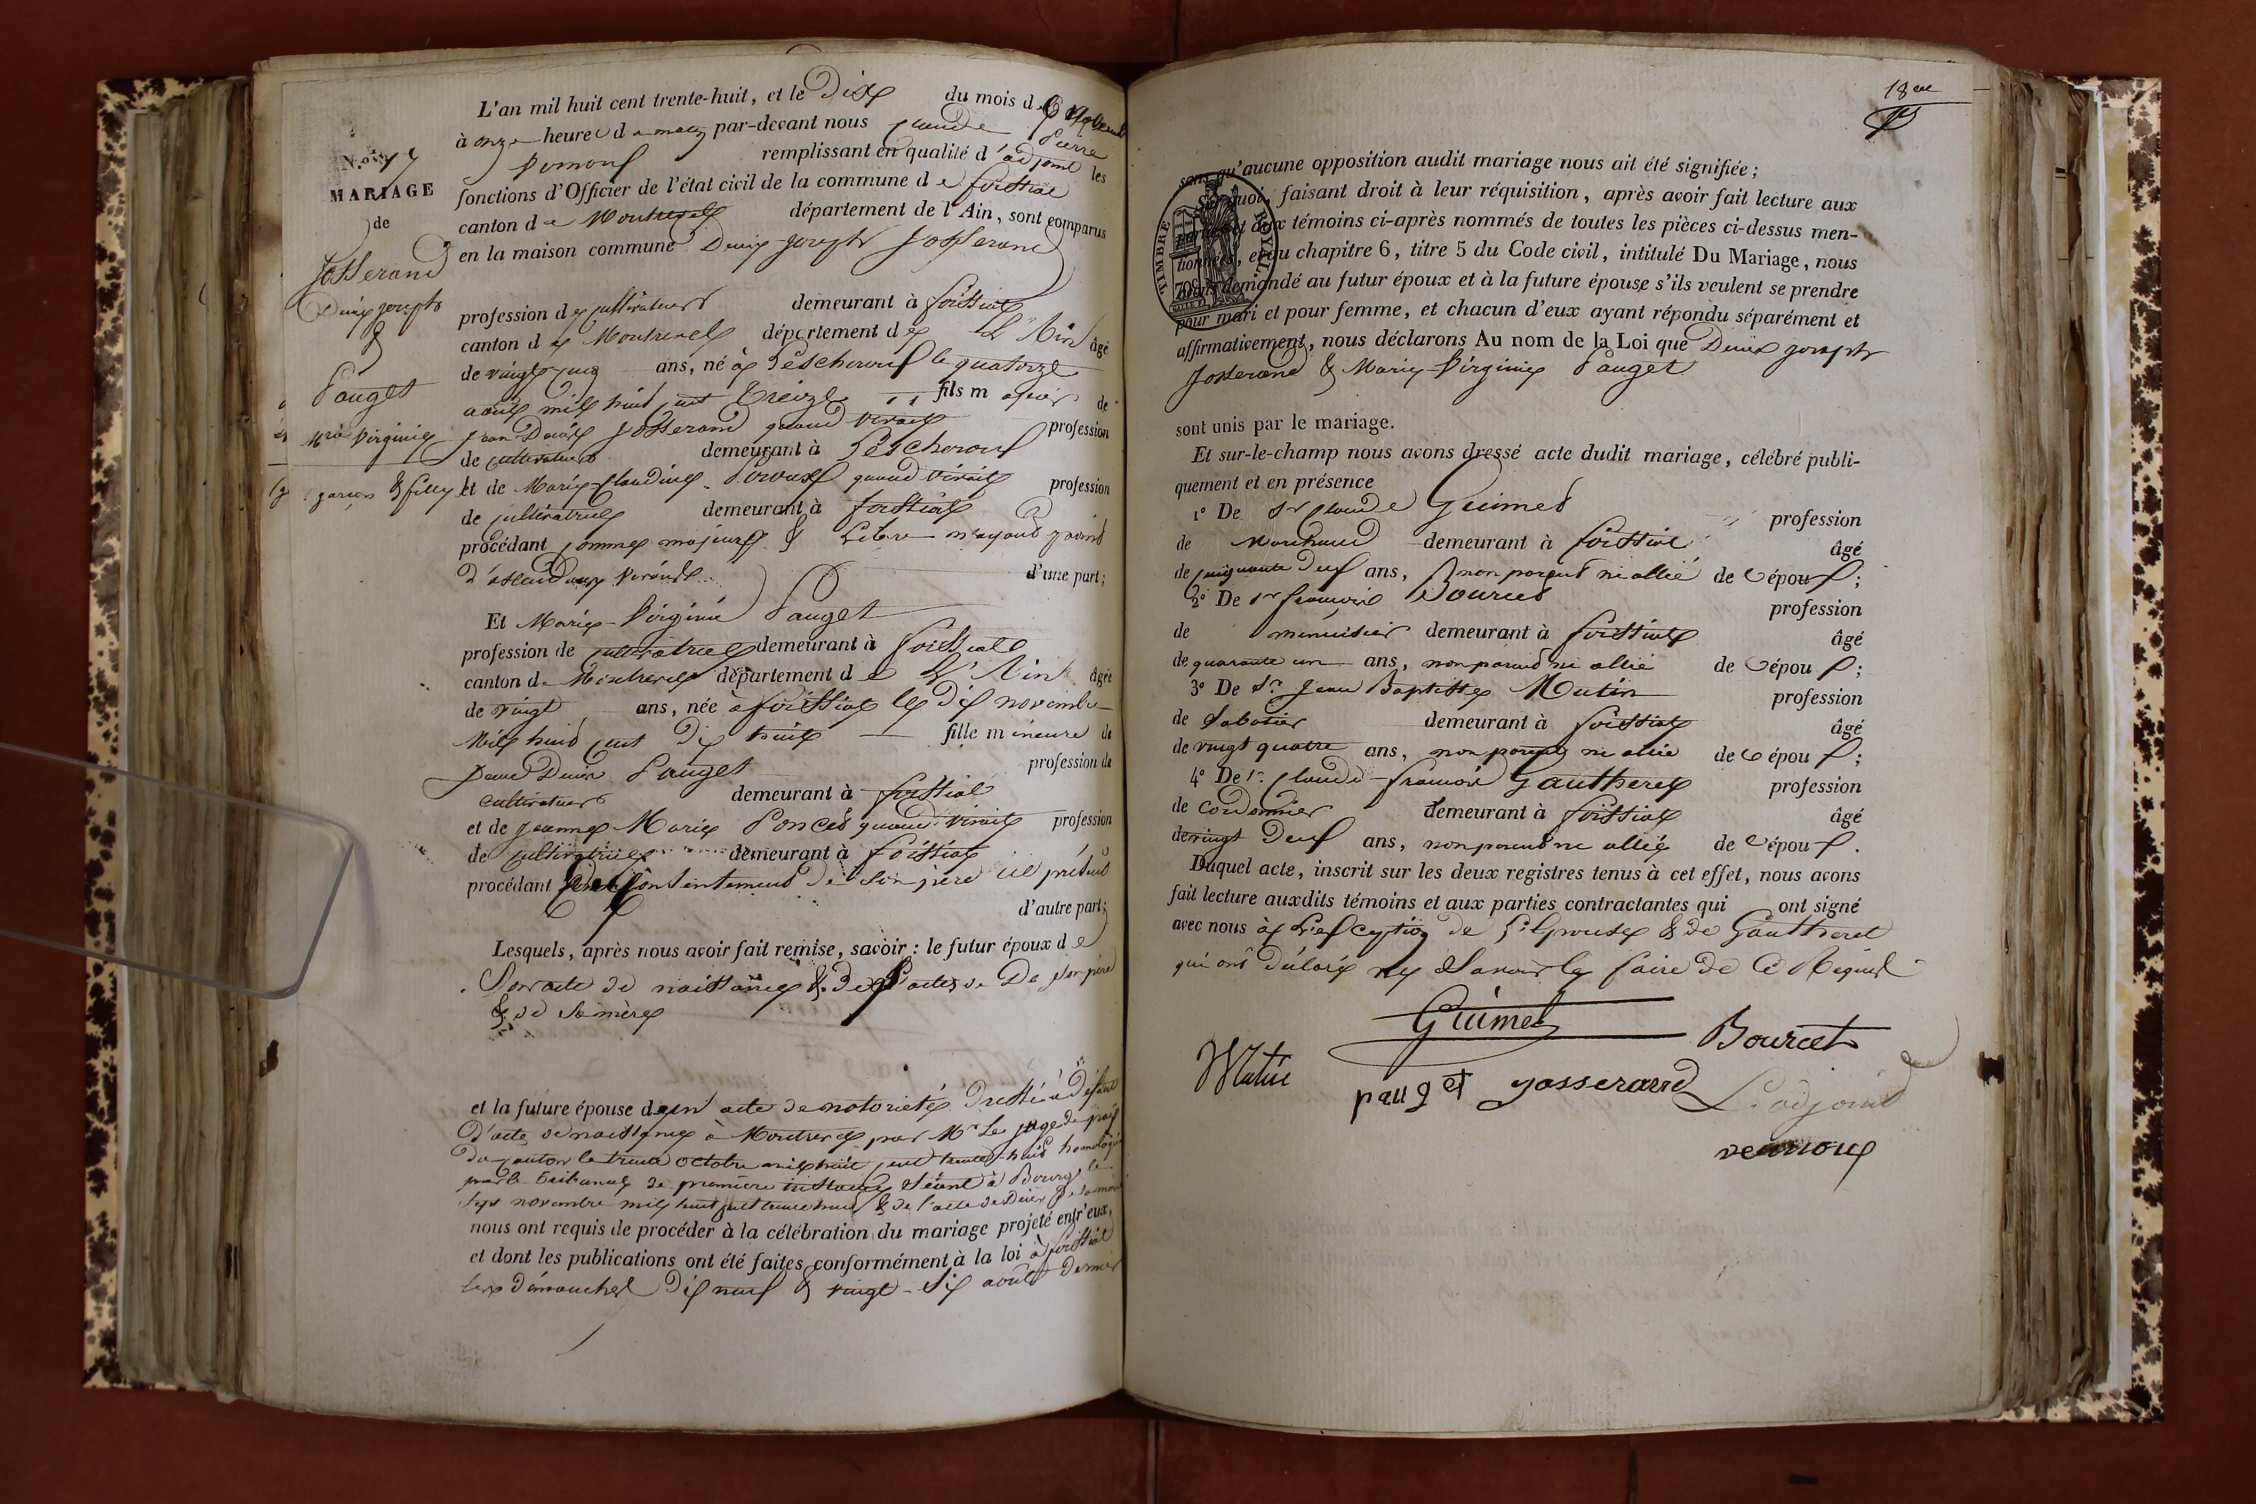 N.º 17
MARIAGE
de
Josserand
Denis joseph
&
Pauget
Mie Virginie
garçon & fille
L'an mil huit cent trente-huit, et le Dix du mois de Novembre
à onze heures du matin par-devant nous Claude Pierre
remplissant en qualité d'adjoint les
fonctions d'Officier de l'état civil de la commune de foissiat
canton de Montrevel département de l'Ain, sont comparus
en la maison commune Denis joseph Josserand
profession de cultivateur demeurant à foissiat
canton de Montrevel département de L'Ain âgé
de vingt cinq ans, né à Lescheroux le quatorze
avril mil huit cent treize fils majeur de
jean Denis Josserand quand vivait profession
de cultivateur demeurant à Lescheroux
et de Marie Claudine quand vivait profession
de cultivatrice demeurant à foissiat
procédant comme majeur & Libre n'ayant point
d'ascendants vivants d'une part;
Et Marie-Virginie Pauget
profession de cultivatrice demeurant à foissiat
canton de Montrevel département de L'Ain âgée
de vingt ans, née à foissiat le dix novembre
mil huit cent dix huit fille mineure de
Denis Pauget profession de
cultivateur demeurant à foissiat
et de jeanne Marie Poncet quand vivait profession
de cultivatrice demeurant à foissiat
procédant du consentement de son père ici présent
d'autre part;
Lesquels, après nous avoir fait remise, savoir : le futur époux de
Son acte de naissance & de l'acte de De son père
& de sa mère
et la future épouse d'un acte de notoriété dressé à défaut
d'acte de naissance à Montrevel par Mr Le juge de paix
du canton le trente octobre mil huit cent trente-huit homologué
par le tribunal de première instance séant à Bourg le
sept novembre mil huit cent trente huit & de l'acte de Décès de sa mère
nous ont requis de procéder à la célébration du mariage projeté entr'eux,
et dont les publications ont été faites conformément à la loi à foissiat
les dimanches dix neuf & vingt-six août dernier
18eme
sans qu'aucune opposition audit mariage nous ait été signifiée;
Sur quoi, faisant droit à leur réquisition, après avoir fait lecture aux
parties et aux témoins ci-après nommés de toutes les pièces ci-dessus men-
tionnées, et du chapitre 6, titre 5 du Code civil, intitulé Du Mariage, nous
avons demandé au futur époux et à la future épouse s'ils veulent se prendre
pour mari et pour femme, et chacun d'eux ayant répondu séparément et
affirmativement, nous déclarons Au nom de la Loi que Denis joseph
Josserand & Marie Virginie Pauget
TIMBRE ROYAL
70c
sont unis par le mariage.
Et sur-le-champ nous avons dressé acte dudit mariage, célébré publi-
quement et en présence
1° De Sr Claude Guimet profession
de Marchand demeurant à foissiat âgé
de cinquante deux ans, non parent ni allié de l'époux;
2° De Sr françois Bourcet profession
de menuisier demeurant à foissiat âgé
de quarante un ans, non parent ni allié de l'époux;
3° De Sr Jean Baptiste Mutin profession
de Sabotier demeurant à foissiat âgé
de vingt quatre ans, non parent ni allié de l'époux;
4° De Sr Claude-françois Gautheret profession
de cordonnier demeurant à foissiat âgé
de vingt deux ans, non parent ni allié de l'époux.
Duquel acte, inscrit sur les deux registres tenus à cet effet, nous avons
fait lecture auxdits témoins et aux parties contractantes qui ont signé
avec nous à L'exception de L'épouse & de Gautheret
qui ont déclaré ne Savoir le faire de ce Requis
Guimet
Bourcet
Mutin
pauget
yosserand
L'adjoint